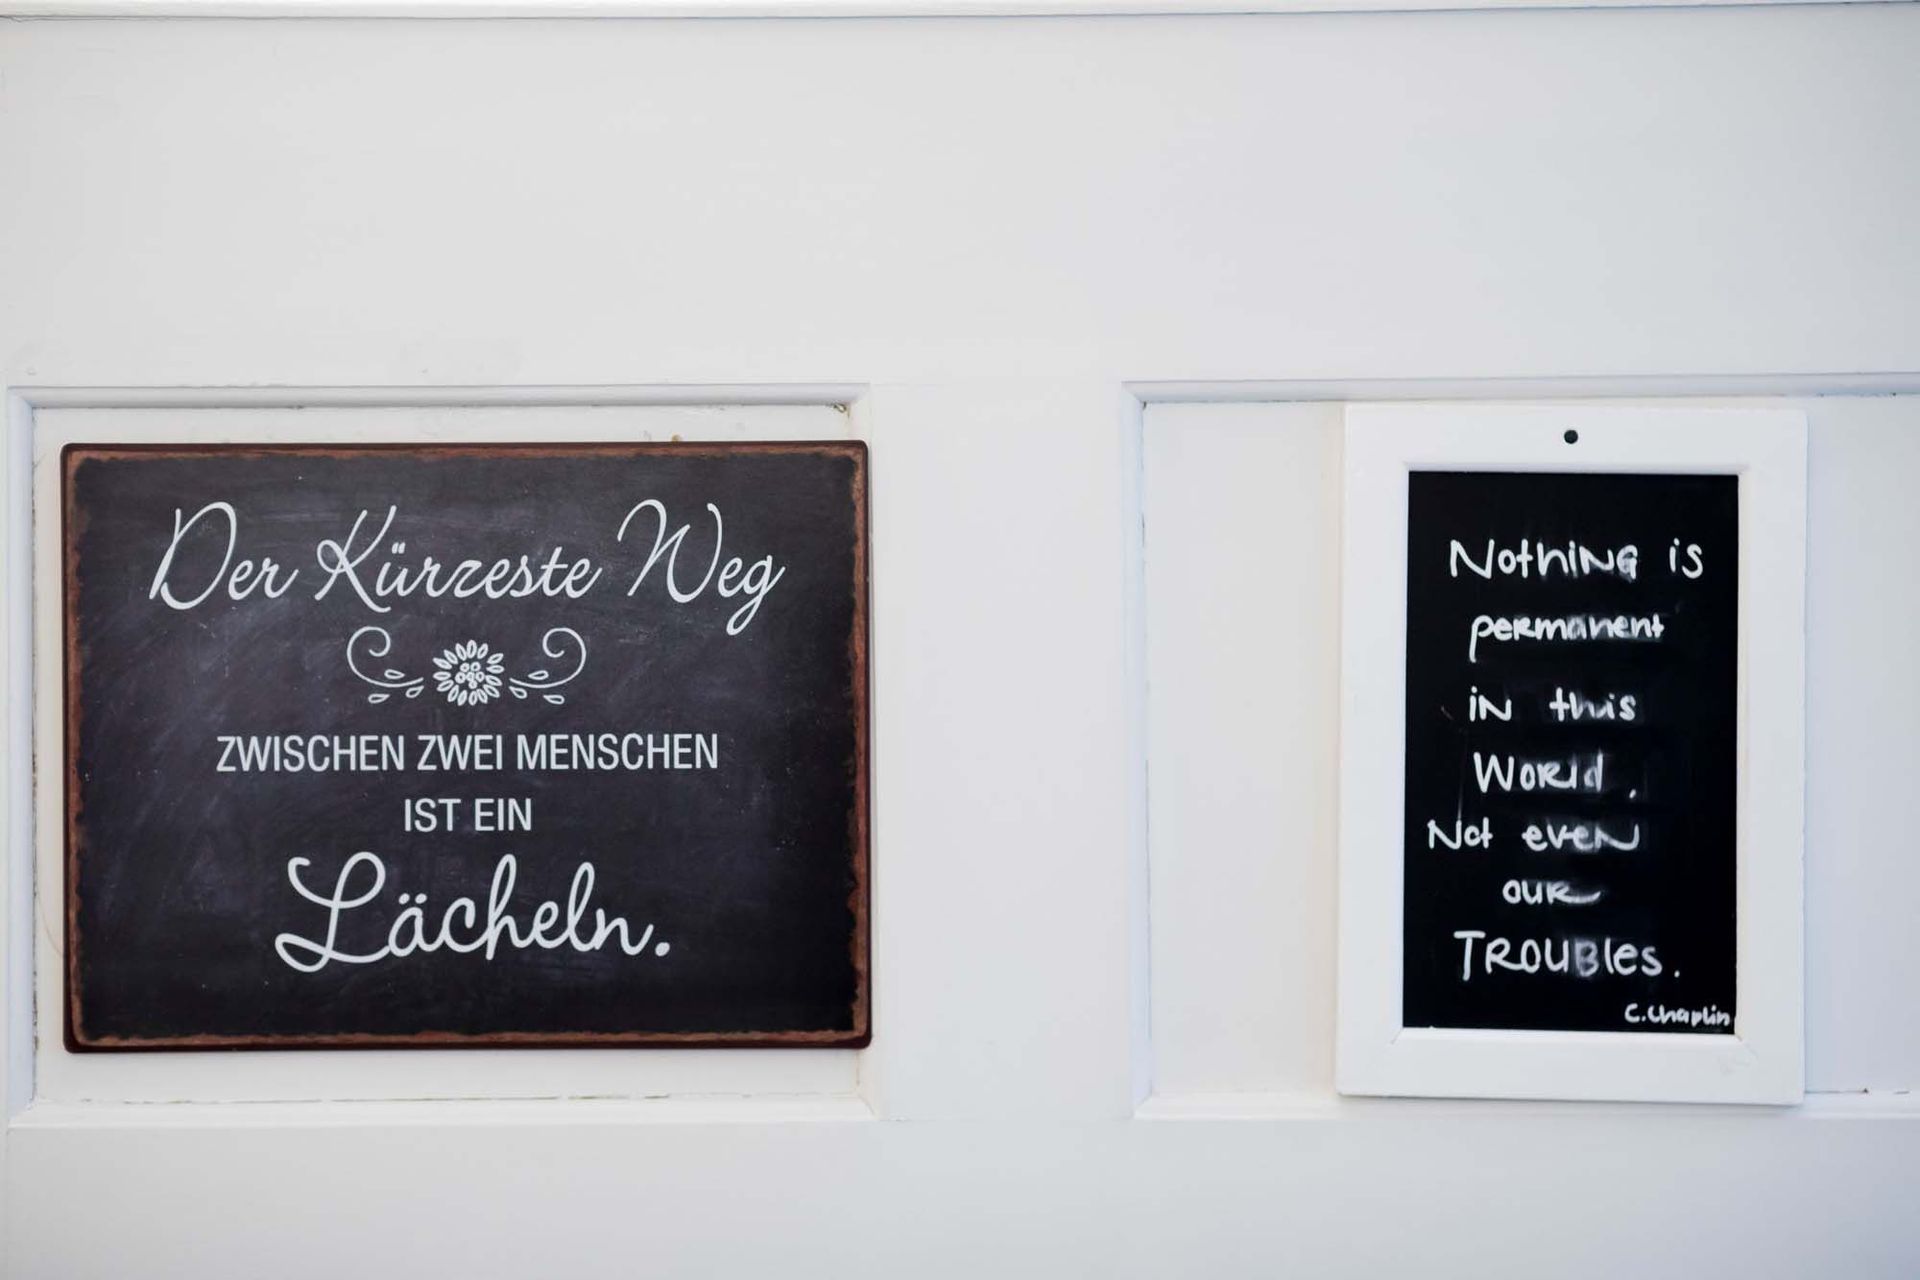 Der Kürzeste Weg
ZWISCHEN ZWEI MENSCHEN
IST EIN
Lächeln.
Nothing is
permanent
in this
World.
Not even
our
TROUBles.
C.Chaplin